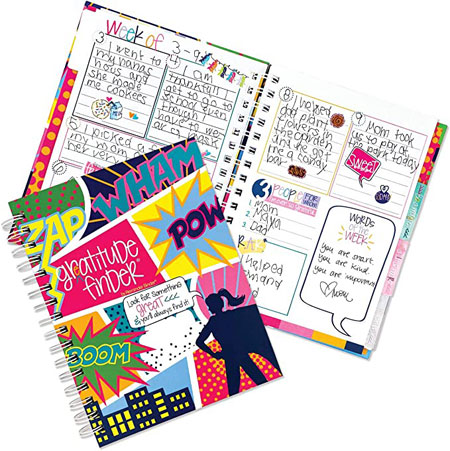 Week of 3-9
3
I went
to my
nanas
hous and
she made
me cookees
4
I am
thankfull
get to go to
school even
5
I picked a
8
I helped
dad plant
flowers in
the garden
and he got
me a candy
bar
9
Mom took
us to play at
the park today
SWEET!
3 People
1 Mom
2 Nana
3 Dad
helped
WORDS
of the
WEEK
you are smart.
you are kind.
you are important
Mom
ZAP
WHAM
POW
gratitude
finder
Look for something
great
& you'll always find it
BOOM